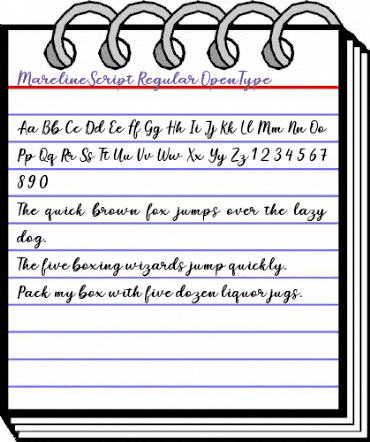 Mareline Script Regular OpenType
Aa Bb Cc Dd Ee Ff Gg Hh Ii Jj Kk Ll Mm Nn Oo
Pp Qq Rr Ss Tt Uu Vv Ww Xx Yy Zz 1 2 3 4 5 6 7
8 9 0
The quick brown fox jumps over the lazy
dog.
The five boxing wizards jump quickly.
Pack my box with five dozen liquor jugs.